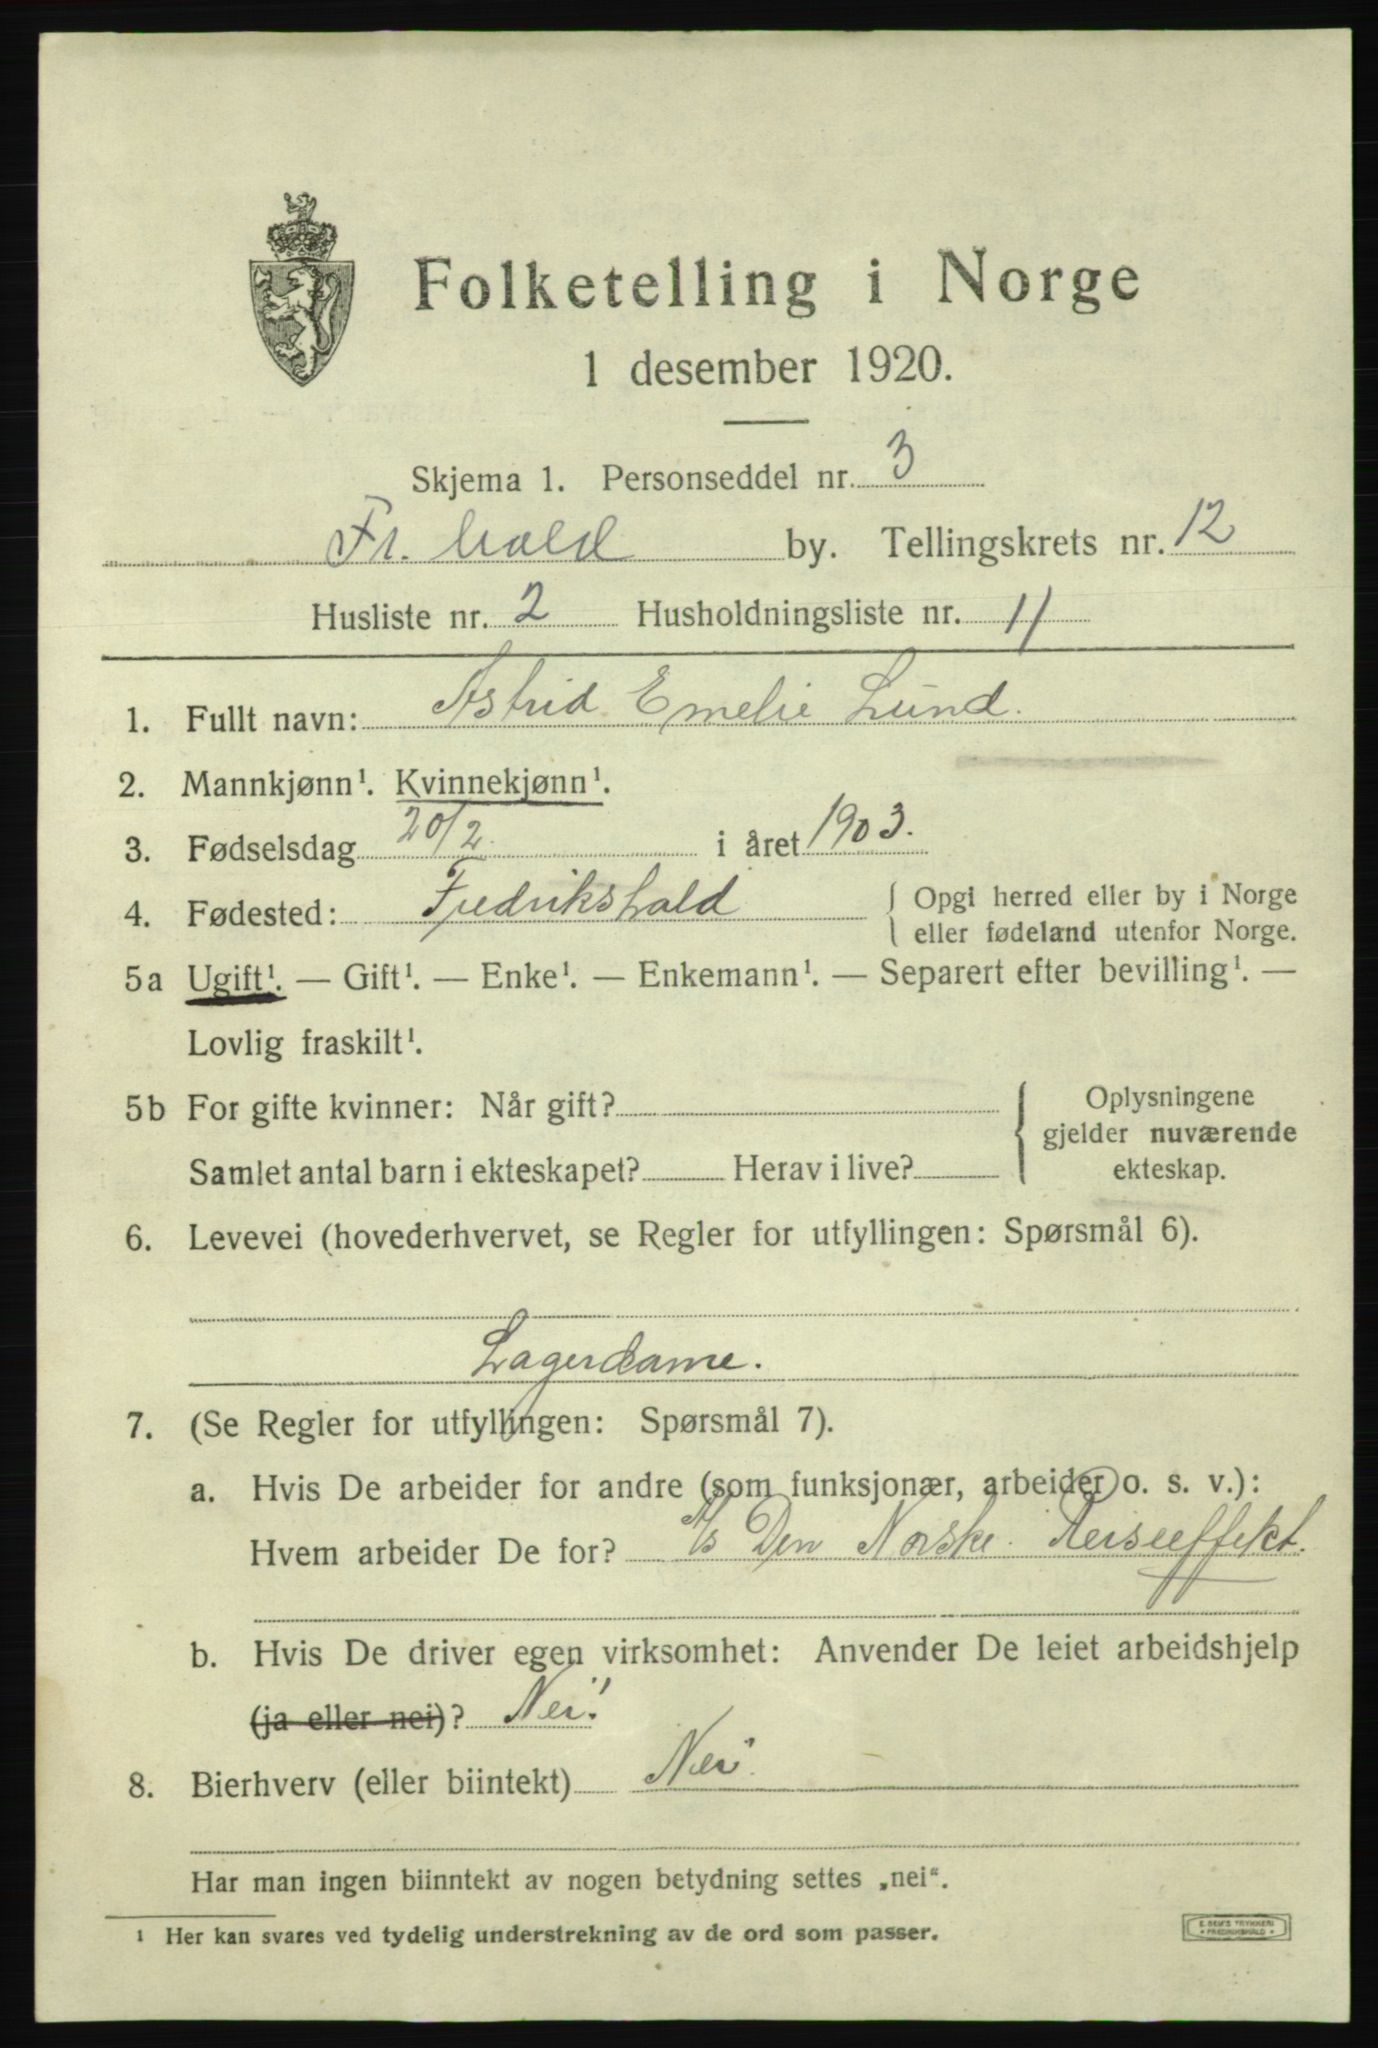 Folketelling i Norge
1 desember 1920.
Skjema 1. Personseddel nr. 3
Fr.hald by. Tellingskrets nr. 12
Husliste nr. 2 Husholdningsliste nr. 11
1. Fullt navn: Astrid Emelie Lund.
2. Mannkjønn¹. Kvinnekjønn¹.
3. Fødselsdag 20/2. i året 1903.
4. Fødested: Fredrikshald { Opgi herred eller by i Norge
eller fødeland utenfor Norge.
5a Ugift¹. — Gift¹. — Enke¹. — Enkemann¹. — Separert efter bevilling¹. —
Lovlig fraskilt¹.
5b For gifte kvinner: Når gift? { Oplysningene
gjelder nuværende
Samlet antal barn i ekteskapet? Herav i live? ekteskap.
6. Levevei (hovederhvervet, se Regler for utfyllingen: Spørsmål 6).
Lagerdame.
7. (Se Regler for utfyllingen: Spørsmål 7).
a. Hvis De arbeider for andre (som funksjonær, arbeider o. s. v.):
Hvem arbeider De for? A/s Den Norske Reiseeffekt.
b. Hvis De driver egen virksomhet: Anvender De leiet arbeidshjelp
(ja eller nei)? Nei!
8. Bierhverv (eller biintekt) Nei.
Har man ingen biinntekt av nogen betydning settes „nei“.
¹ Her kan svares ved tydelig understrekning av de ord som passer.
E. SEM'S TRYKKERI
• FREDRIKSHALD •